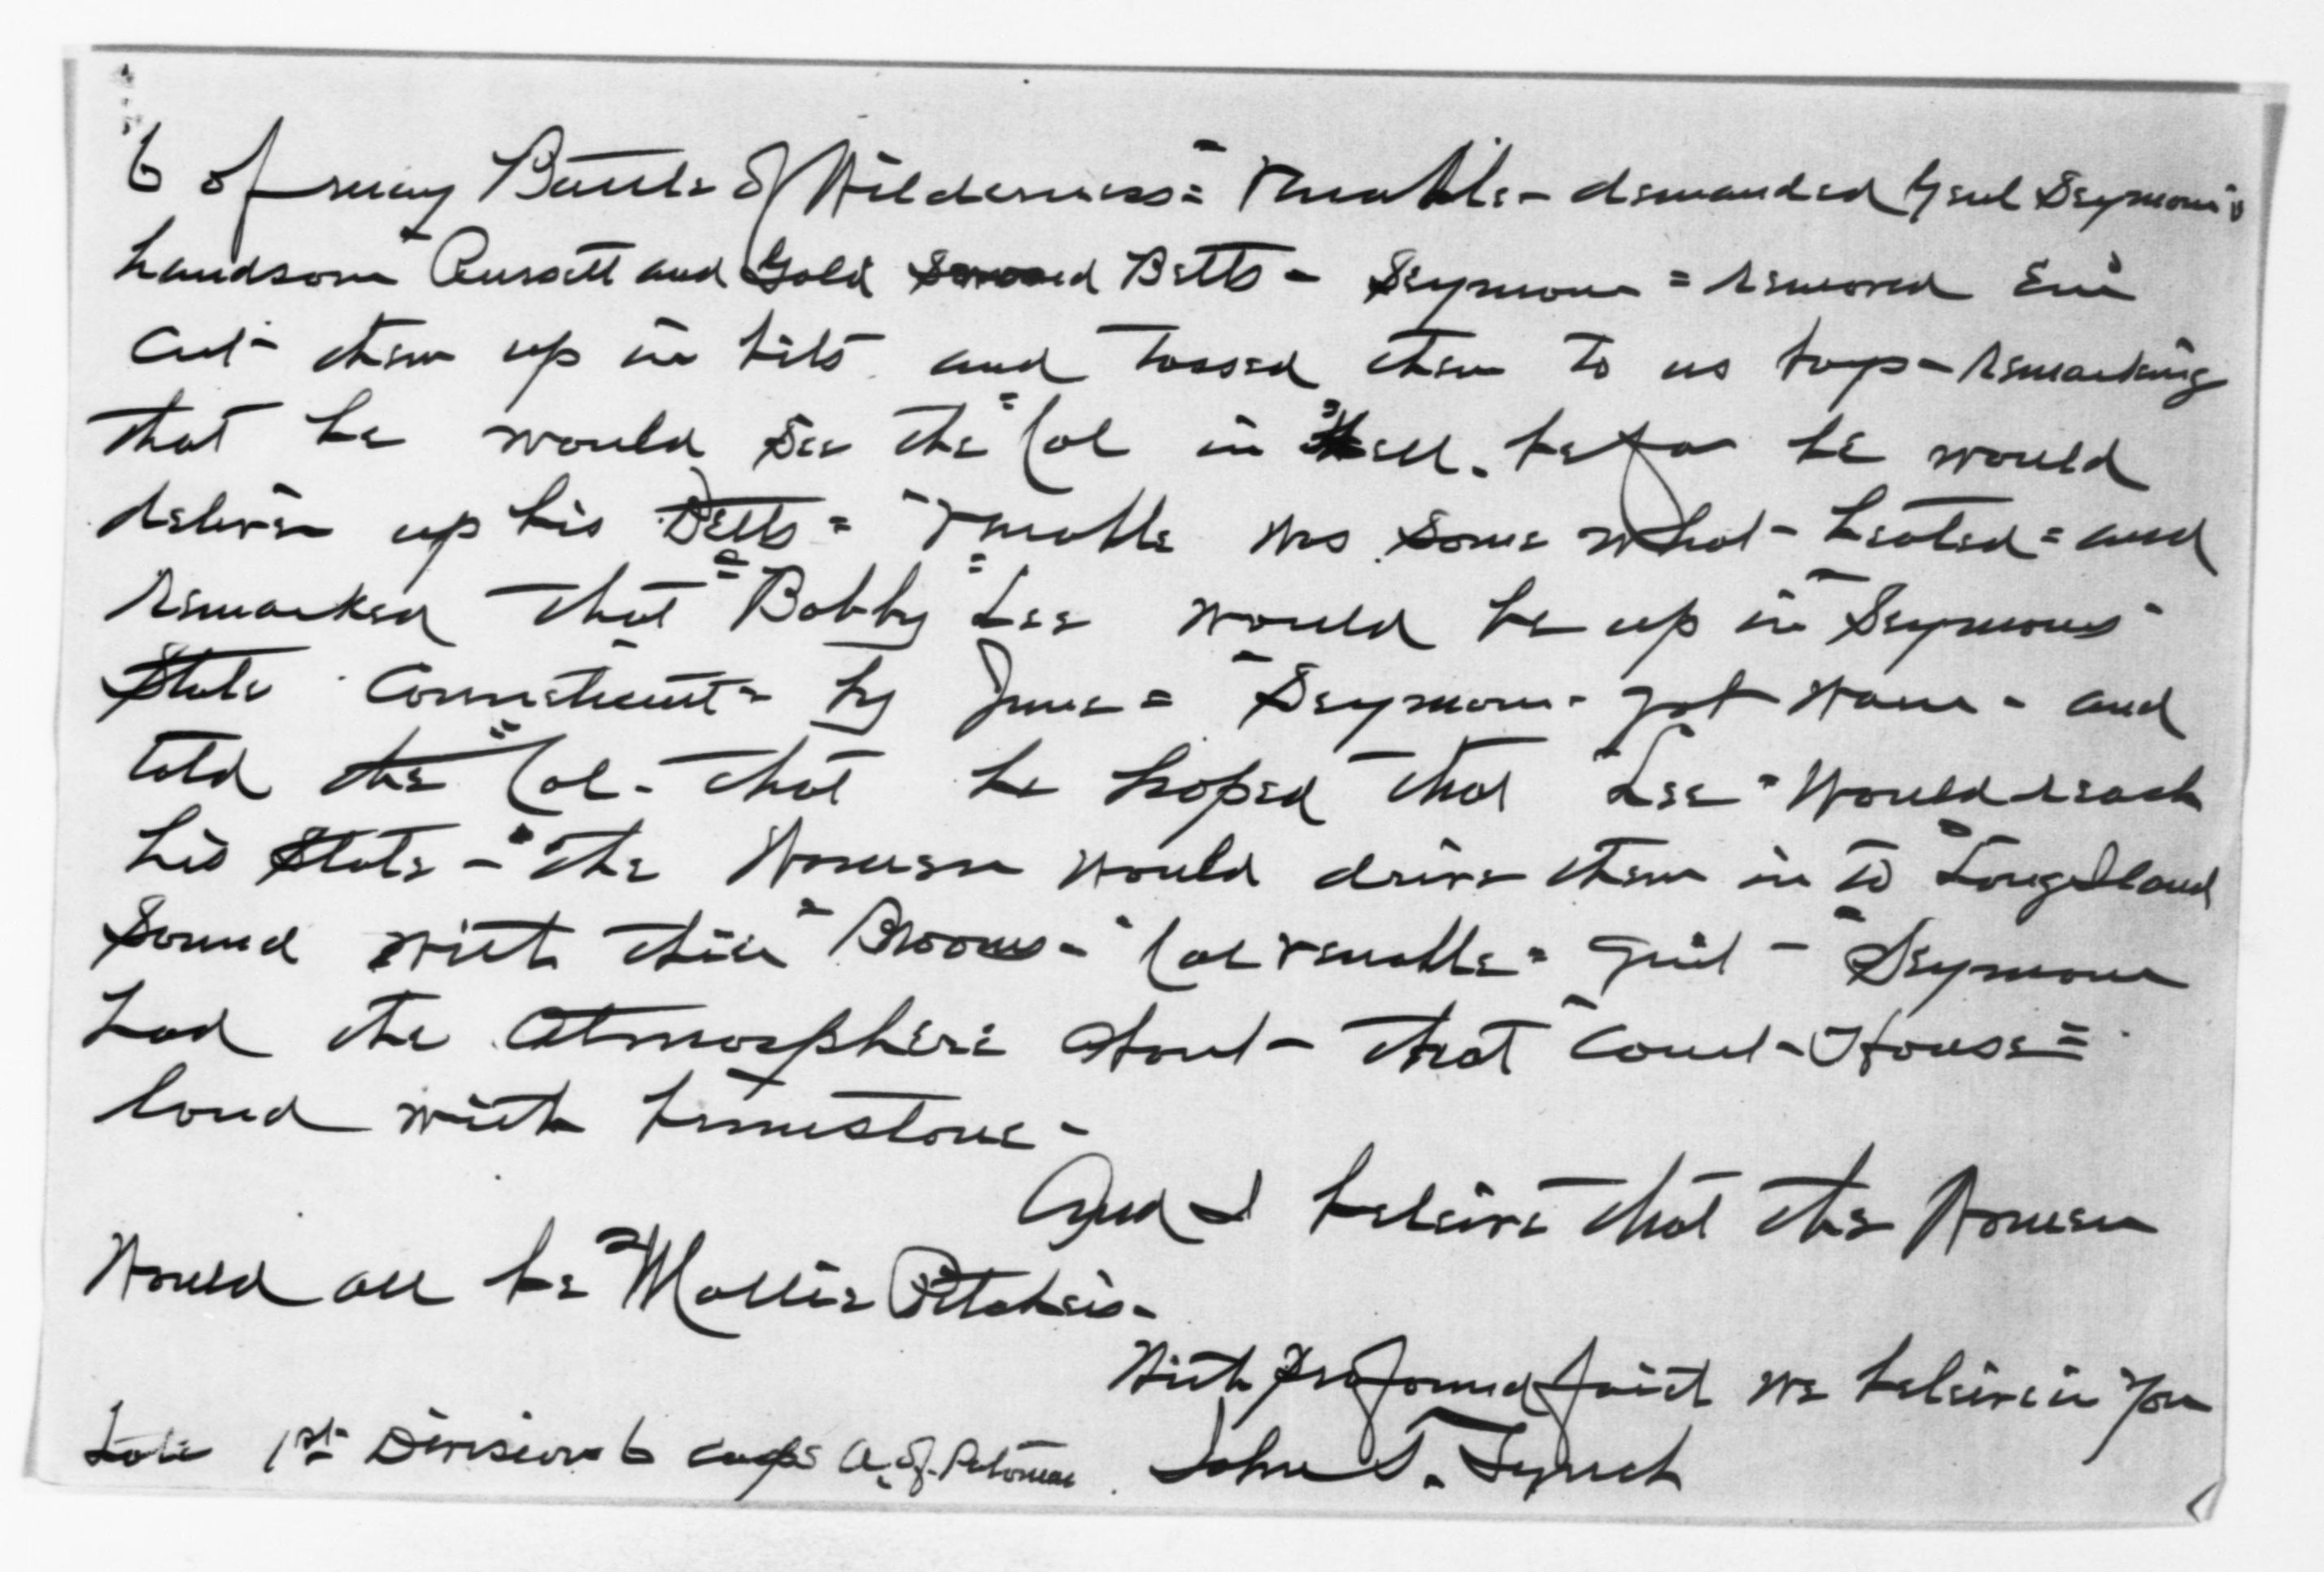 6 of may Battle of Wilderness = Venable - demanded Genl Seymours
handsome Russett and Gold Sword Belts - Seymour = removed Em
Cut - them up in bits and tossed them to us boys - remarking
that he would See the "Col in Hell. befor he would
deliver up his Belts = "Venable was Some what - heated = and
remarked that "Bobby Lee would be up in "Seymours"
State Connecticut - by June = "Seymour - got warm - and
told the "Col - that he hoped that "Lee" would reach
his State - "The Women would drive them in to "Long Island
Sound with thier "Brooms - "Col Venable = quit - "Seymour
had the Atmosphere about - that "Court - House =
loud with brimstone -
And I beleive that the Women
Would all be "Mollie Pitchers -
With profound faith we beleive in you
Late 1st Division 6 corps A. of Potomac John T. Lynch